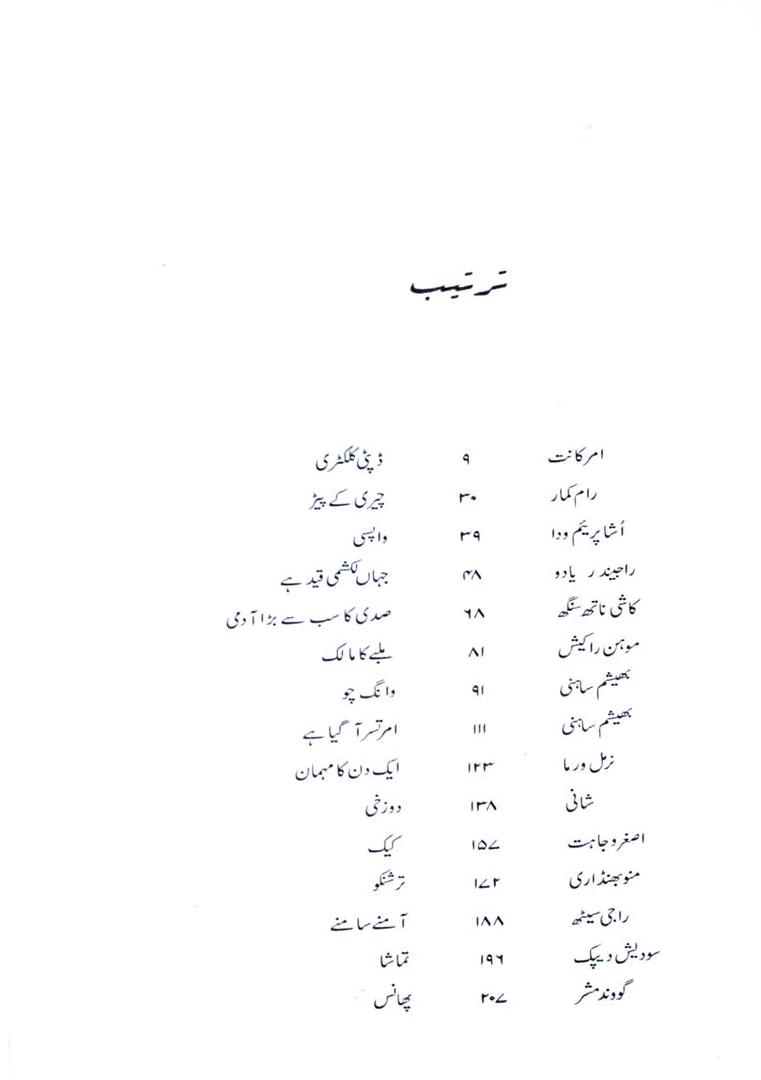 ترتیب
امر کانت ۹ ڈپٹی کلکٹری
رام کمار ۳۰ چیری کے پیڑ
اُشا پریئم ودا ۳۹ واپسی
راجیندر یادو ۴۸ جہاں لکشمی قید ہے
کاشی ناتھ سنگھ ۶۸ صدی کا سب سے بڑا آدمی
موہن راکیش ۸۱ ملبے کا مالک
بھیشم ساہنی ۹۱ وانگ چو
بھیشم ساہنی ۱۱۱ امرتسر آ گیا ہے
نرمل ورما ۱۲۳ ایک دن کا مہمان
شانی ۱۳۸ دوزخی
اصغر وجاہت ۱۵۷ کیک
منو بھنڈاری ۱۷۲ ترشنکو
راجی سیٹھ ۱۸۸ آمنے سامنے
سودیش دیپک ۱۹۶ تماشا
گووند مشر ۲۰۷ پھانس